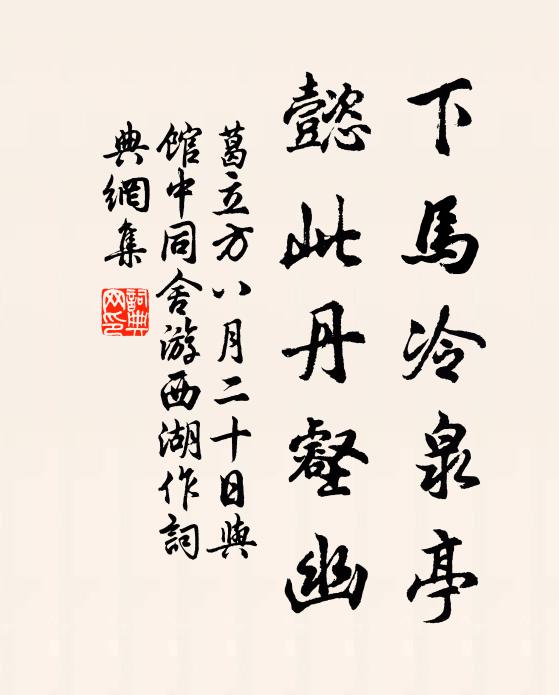 下馬冷泉亭
懿此丹壑幽
葛立方八月二十日與
館中同舍游西湖作詞
典網集
詞典
网印